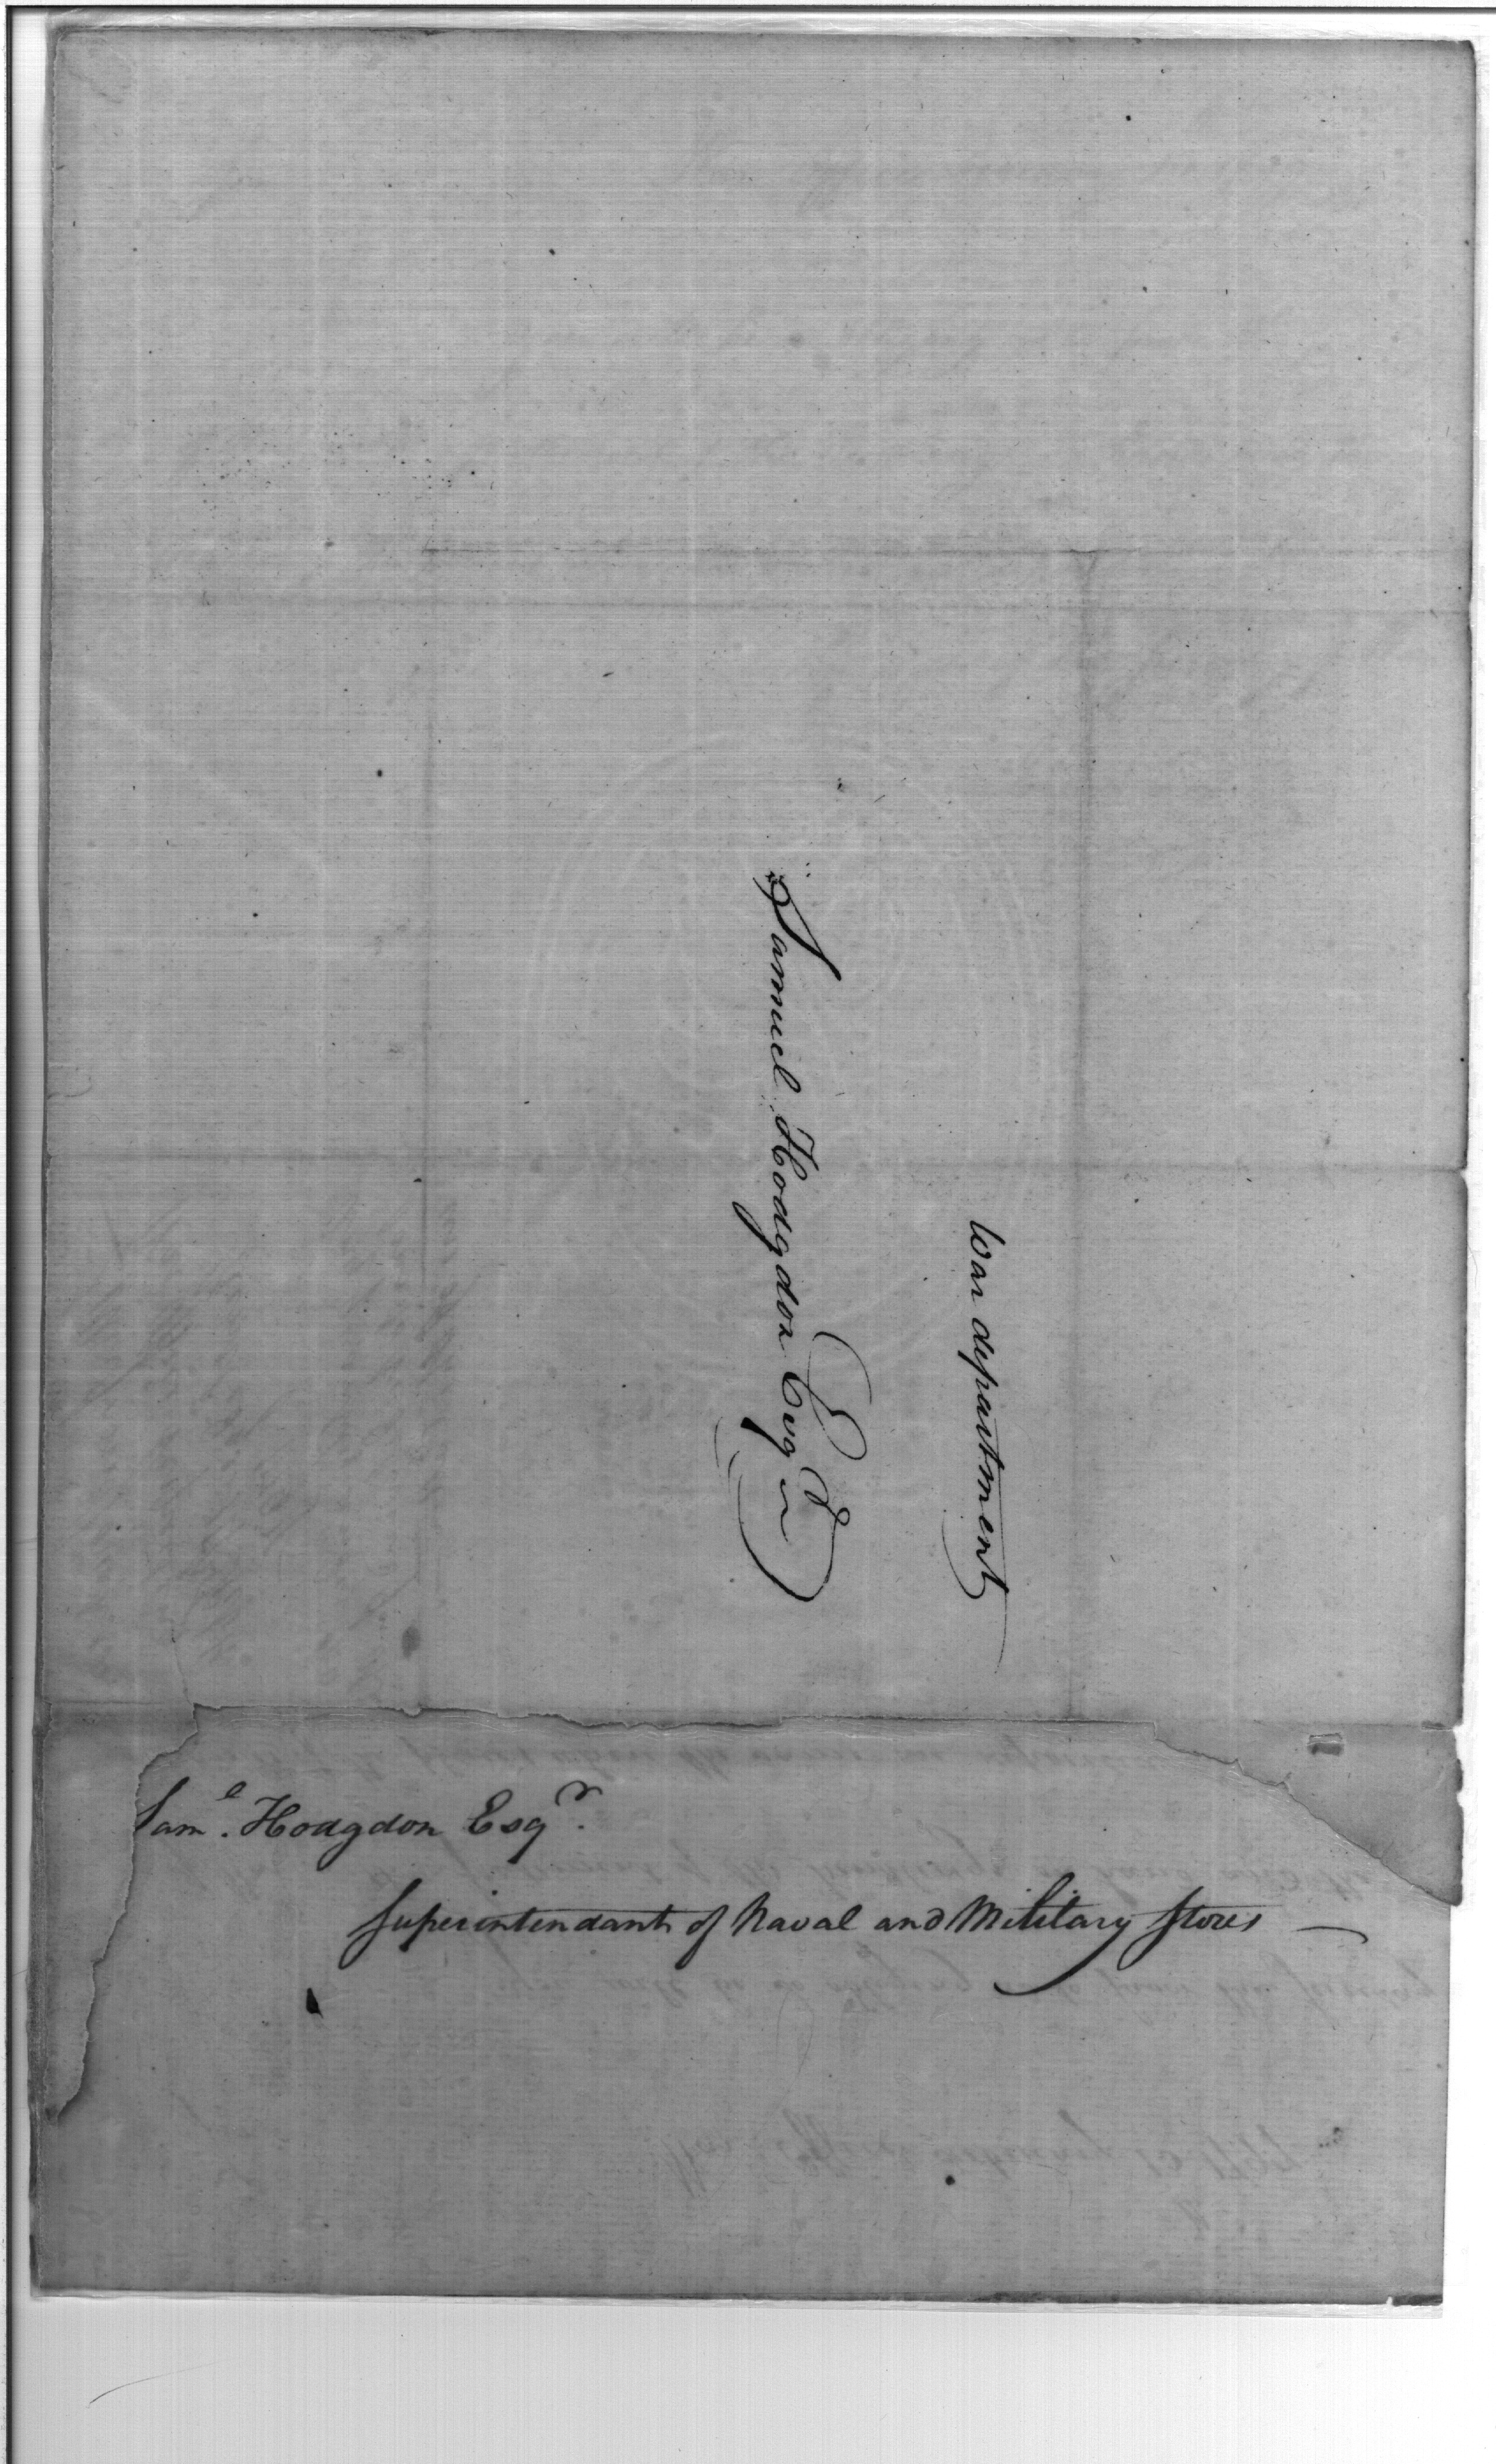 War department
Samuel Hodgdon Esqr
Saml. Hodgdon Esqr.
Superintendant of Naval and Military Stores —